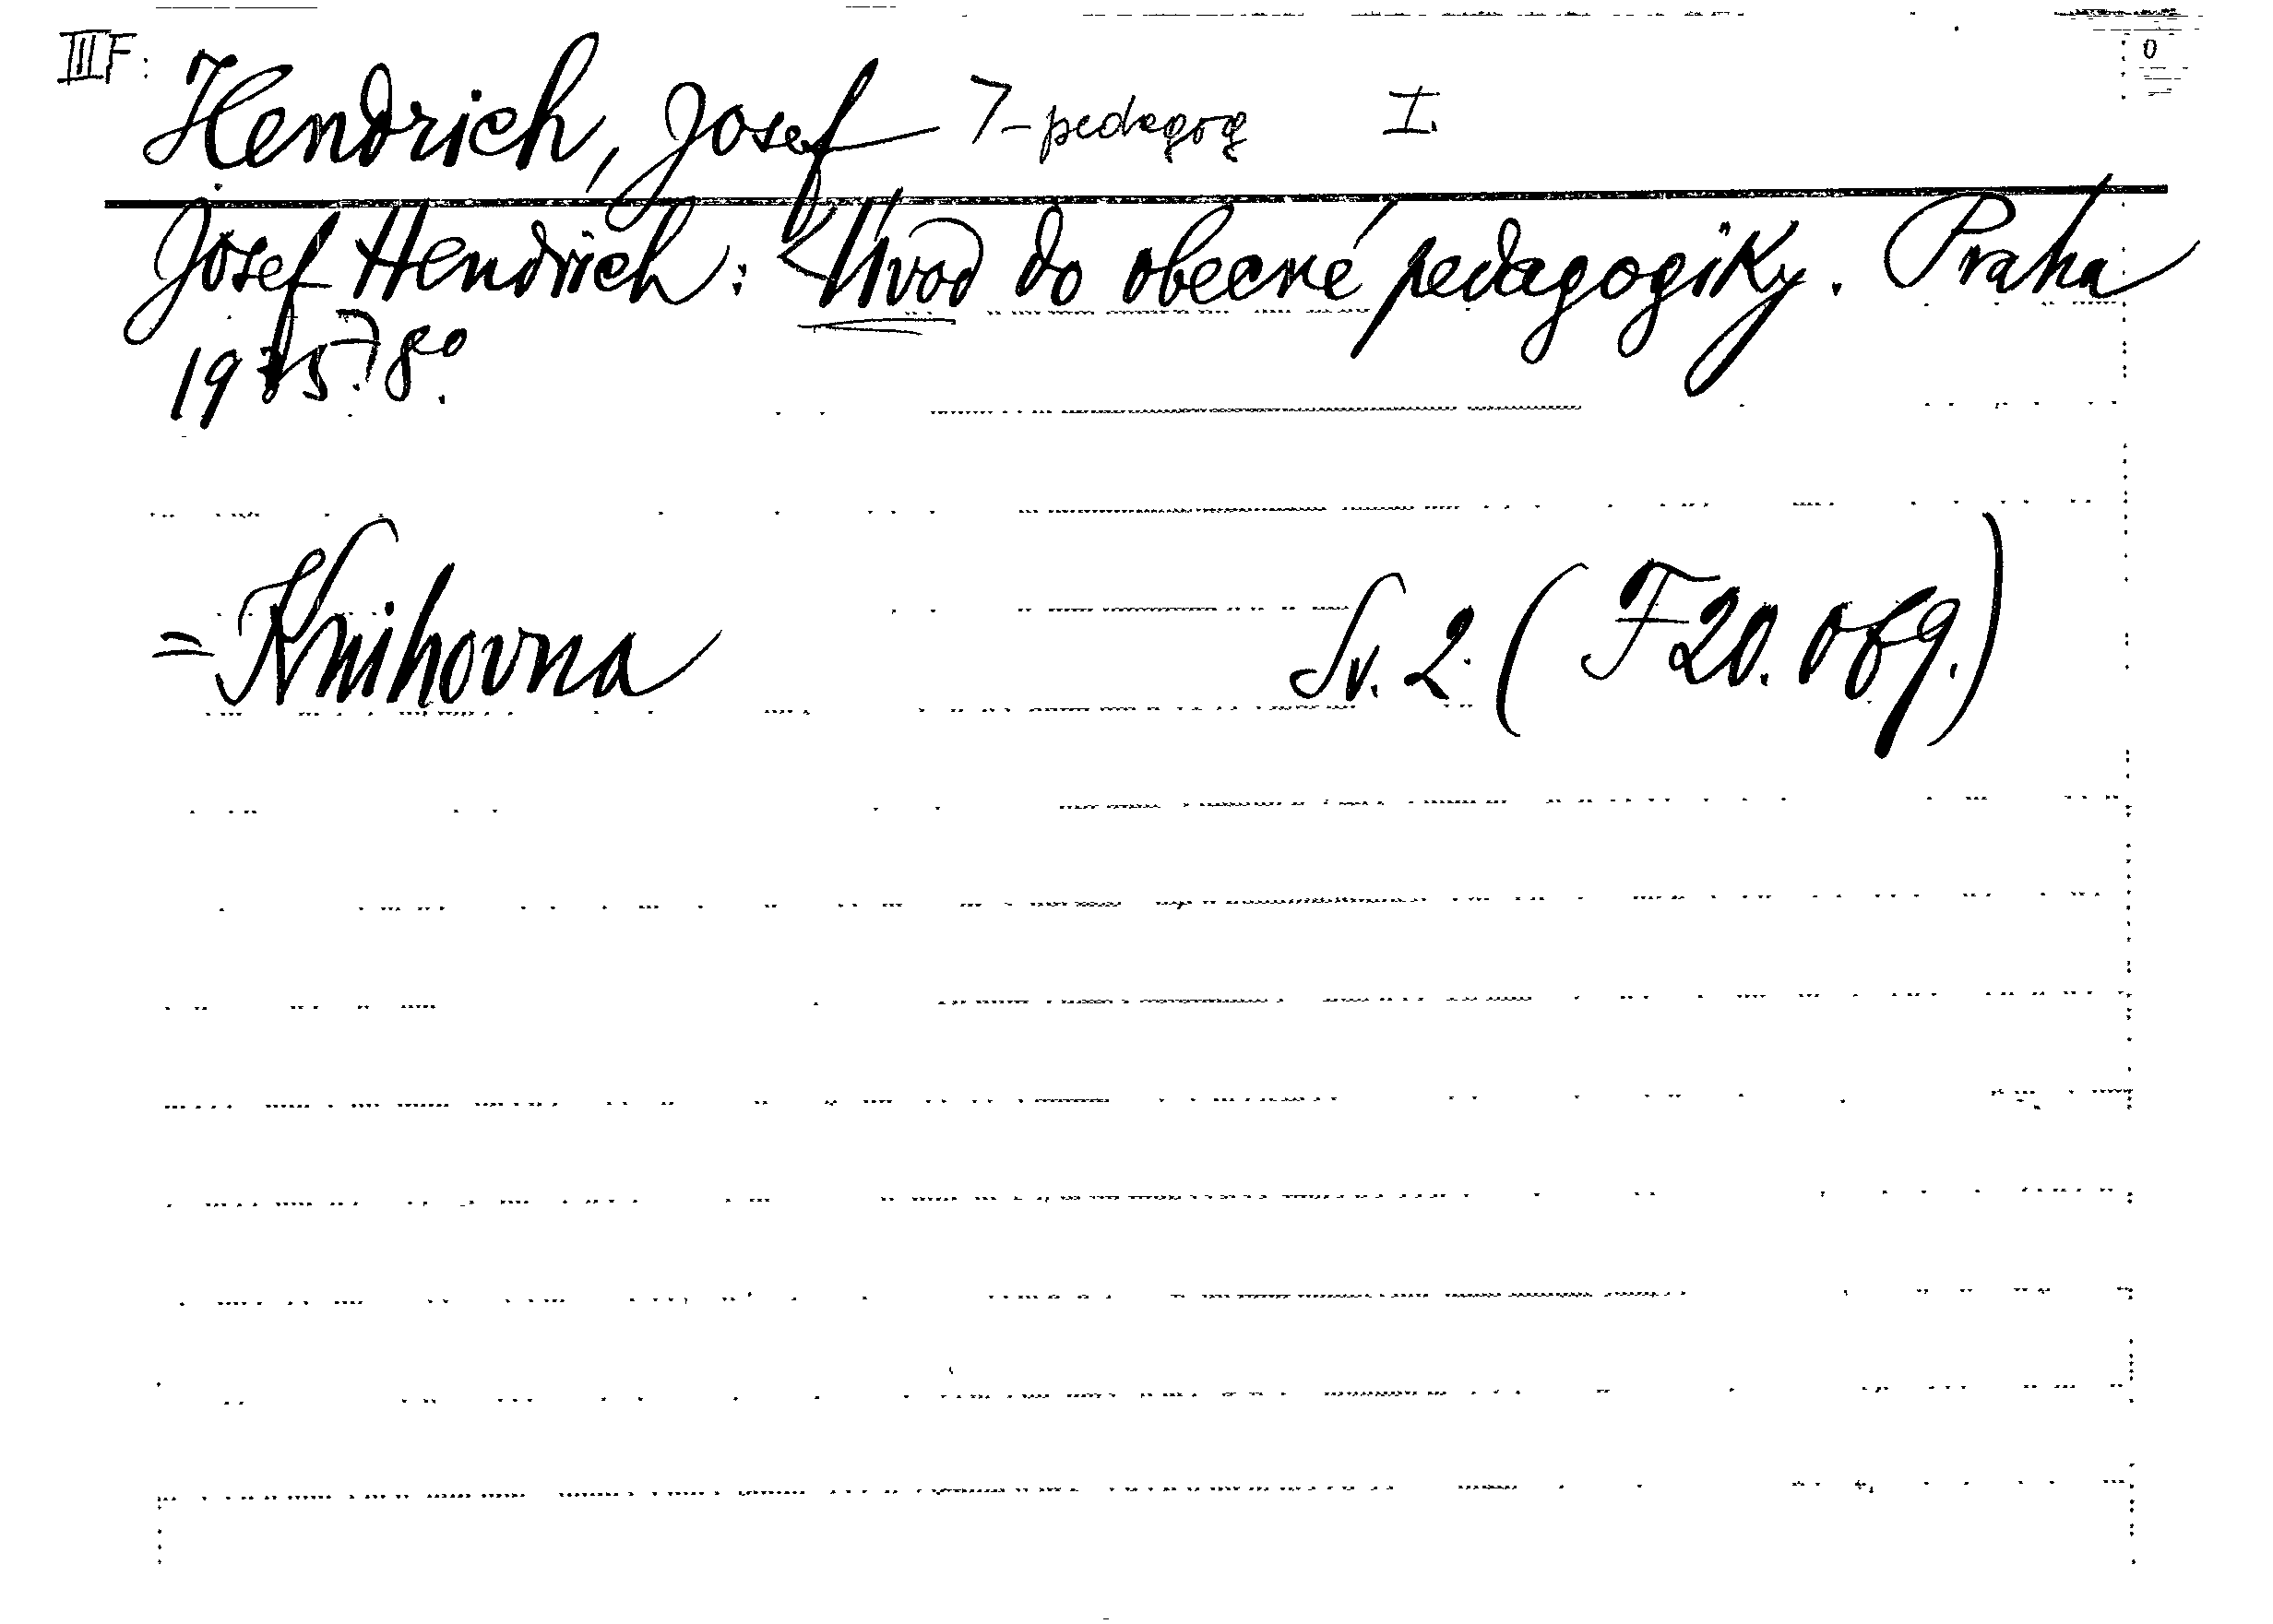 IIIF: Hendrich, Josef 7-pedagog I.
Josef Hendrich: Úvod do obecné pedagogiky. Praha
8°.
= Knihovna Sv. 2. (F 20. 0f9.)